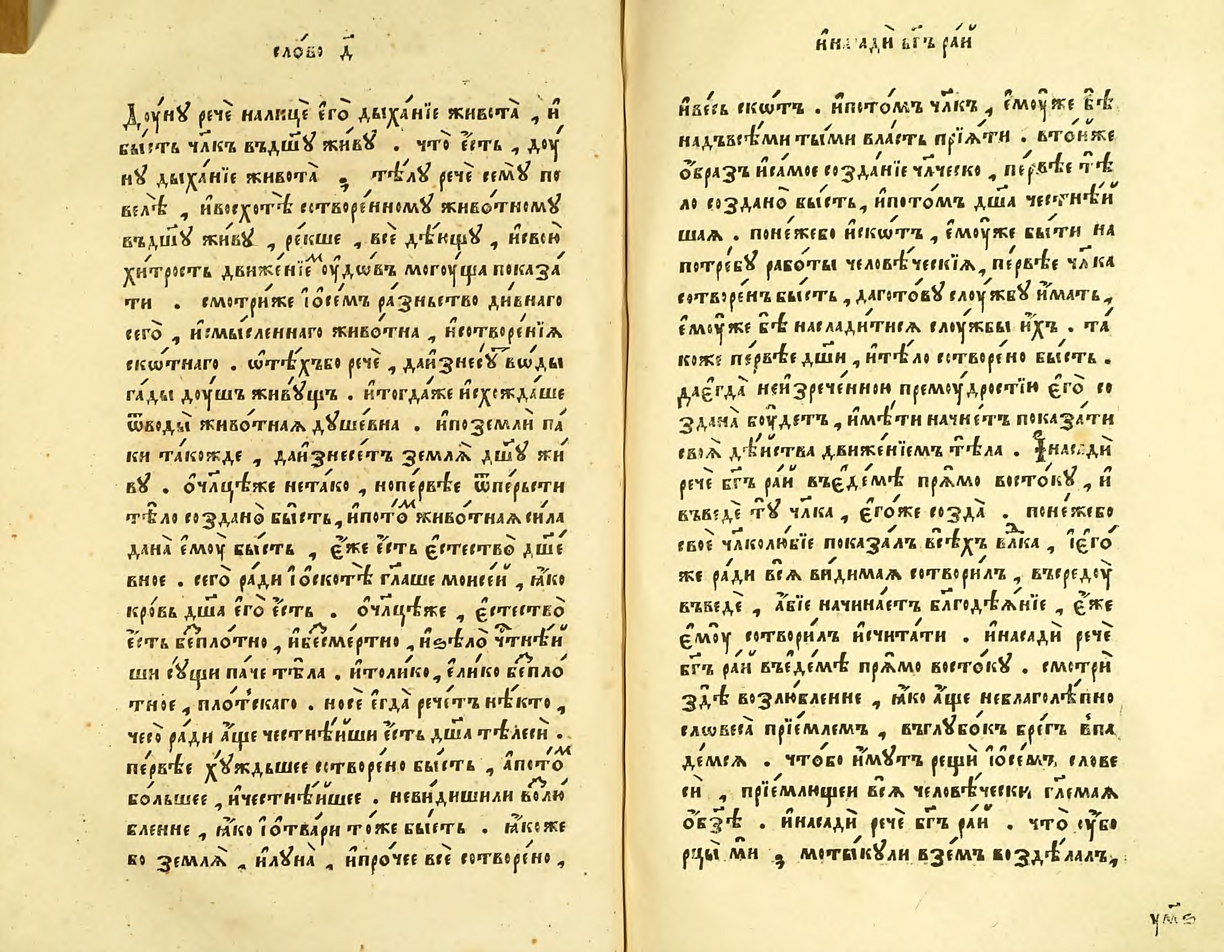 сло́во д҃
Доу́нꙋ речѐ налицѐ єго̀ дыха́нїе живота̀ , и҆
бы́сть чл҃къ въдш҃ꙋ жи́вꙋ . что̀ є҆́сть , доу́
нꙋ дыха́нїе живота̀ ; тѣ́лꙋ речѐ семꙋ̀ по
велѣ̀ , и҆восхотѣ̀ сотворе́нномꙋ живо́тномꙋ
въдш҃ꙋ жи́вꙋ , ре́кше , всѐ дѣ́ющꙋ , и҆свою̀
хи́трость движе́нїем оу҆́дѡвъ могоу́ща показа́
ти . смотри́же і҆осе́мъ ра́зньство ди́внаго
сего̀ , и҆смы́сленнаго живо́тна , и҆сотворе́нїѧ
ско́тнаго . ѿтѣ́хъбо речѐ , даи҆знесꙋ́т во́ды
га́ды доу́шъ живꙋ́щъ . и҆тогда́же и҆схожда́ше
ѿводы̀ живо́тнаѧ дꙋше́вна . и҆поземлѝ па́
ки та́кожде , даи҆знесе́тъ землѧ̀ дш҃ꙋ жи́
вꙋ . ѡ҆чл҃цѣ́же нета́ко , нопе́рвѣе ѿпе́рьсти
тѣ́ло со́здано бы́сть , и҆пото́м живо́тнаѧ си́ла
дана̀ є҆моу̀ бы́сть , є҆́же є҆́сть є҆стество̀ дш҃е́
вное . сего̀ ра́ди і҆оскотѣ̀ гл҃аше моисе́й , ꙗ҆́ко
кро́вь дш҃а є҆го̀ є҆́сть . ѡ҆чл҃цѣ́же , є҆стество̀
є҆́сть беспло́тно , и҆бесме́ртно , и҆ѕѣло̀ чт҃нѣ́и
ши сꙋ́щи па́че тѣ́ла . и҆толи́ко , є҆ли́ко беспло́
тное , пло́тскаго . носѐ є҆гда̀ рече́тъ нѣ́кто ,
чесо̀ ра́ди а҆́ще честнѣ́йши є҆́сть дш҃а тѣлесѝ .
пе́рвѣе хꙋ́ждьшее сотворе́но бы́сть , а҆пото́м
бо́льшее , и҆честнѣ́йшее . неви́дишили возлю́
бленне , ꙗ҆́ко і҆ѡтва́ри то́же бы́сть . ꙗ҆́коже
бо землѧ̀ , и҆лꙋна̀ , и҆про́чее всѐ сотворе́но ,
и҆насадѝ бг҃ъ ра́й
и҆ве́сь ско́тъ . и҆пото́мъ чл҃къ , є҆моу́же бѣ̀
надъвсѣ́ми ты́ми вла́сть прїѧ́ти . вто́йже
ѻ҆́бразъ и҆са́мое созда́нїе чл҃ческо , пе́рвѣе тѣ́
ло со́здано бы́сть , и҆пото́мъ дш҃а честнѣ́й
шаѧ . поне́жебо и҆ско́тъ , є҆моу́же бы́ти на
потре́бꙋ рабо́ты человѣ́ческїѧ , пе́рвѣе чл҃ка
сотворе́нъ бы́сть , даготовꙋ слоу́жбꙋ и҆́мать ,
є҆моу́же бѣ̀ наслади́тисѧ слоу́жбы и҆́хъ . та́
коже пе́рвѣе дш҃и , и҆тѣ́ло сотворе́но бы́сть .
дає҆гда̀ неизрече́нною премоу́дростїю є҆го̀ со
здана̀ боу́детъ , и҆мѣ́ти начне́тъ показа́ти
своѧ̀ дѣ́йства движе́нїемъ тѣ́ла . И҆насадѝ
речѐ бг҃ъ ра́й въє҆де́мѣ прѧ́мо восто́кꙋ , и҆
въведѐ тꙋ̀ чл҃ка , є҆го́же созда̀ . поне́жебо
своѐ чл҃колю́бїе показа́лъ всѣ́хъ влⷣка , і҆є҆го́
же ра́ди всѧ̀ ви́димаѧ сотвори́лъ , въсредоу̀
въведѐ , а҆́бїе начина́етъ бл҃годѣѧ́нїе , є҆́же
є҆моу̀ сотвори́лъ и҆счита́ти . и҆насадѝ речѐ
бг҃ъ ра́й въє҆де́мѣ прѧ́мо восто́кꙋ . смотрѝ
здѣ̀ возлю́бленне , ꙗ҆́ко а҆́ще неблаголѣ́пно
словеса̀ прїе́млемъ , въглꙋбо́къ бре́гъ впа
де́мсѧ . что́бо и҆́мꙋтъ рещѝ і҆осе́мъ слове
сѝ , прїе́млющеи всѧ̀ человѣ́чески гл҃емаѧ
ѻ҆бз҃ѣ . и҆насадѝ речѐ бг҃ъ ра́й . что̀ оу҆́бо
рцы́ ми ; моты́кꙋли взе́мъ воздѣ́лалъ ,